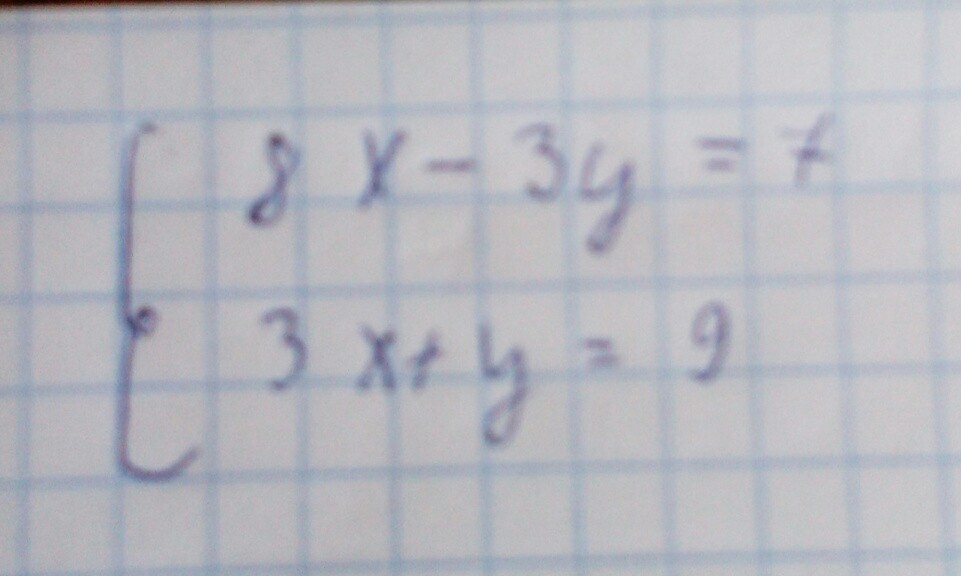 8x - 3y = 7
3x + y = 9